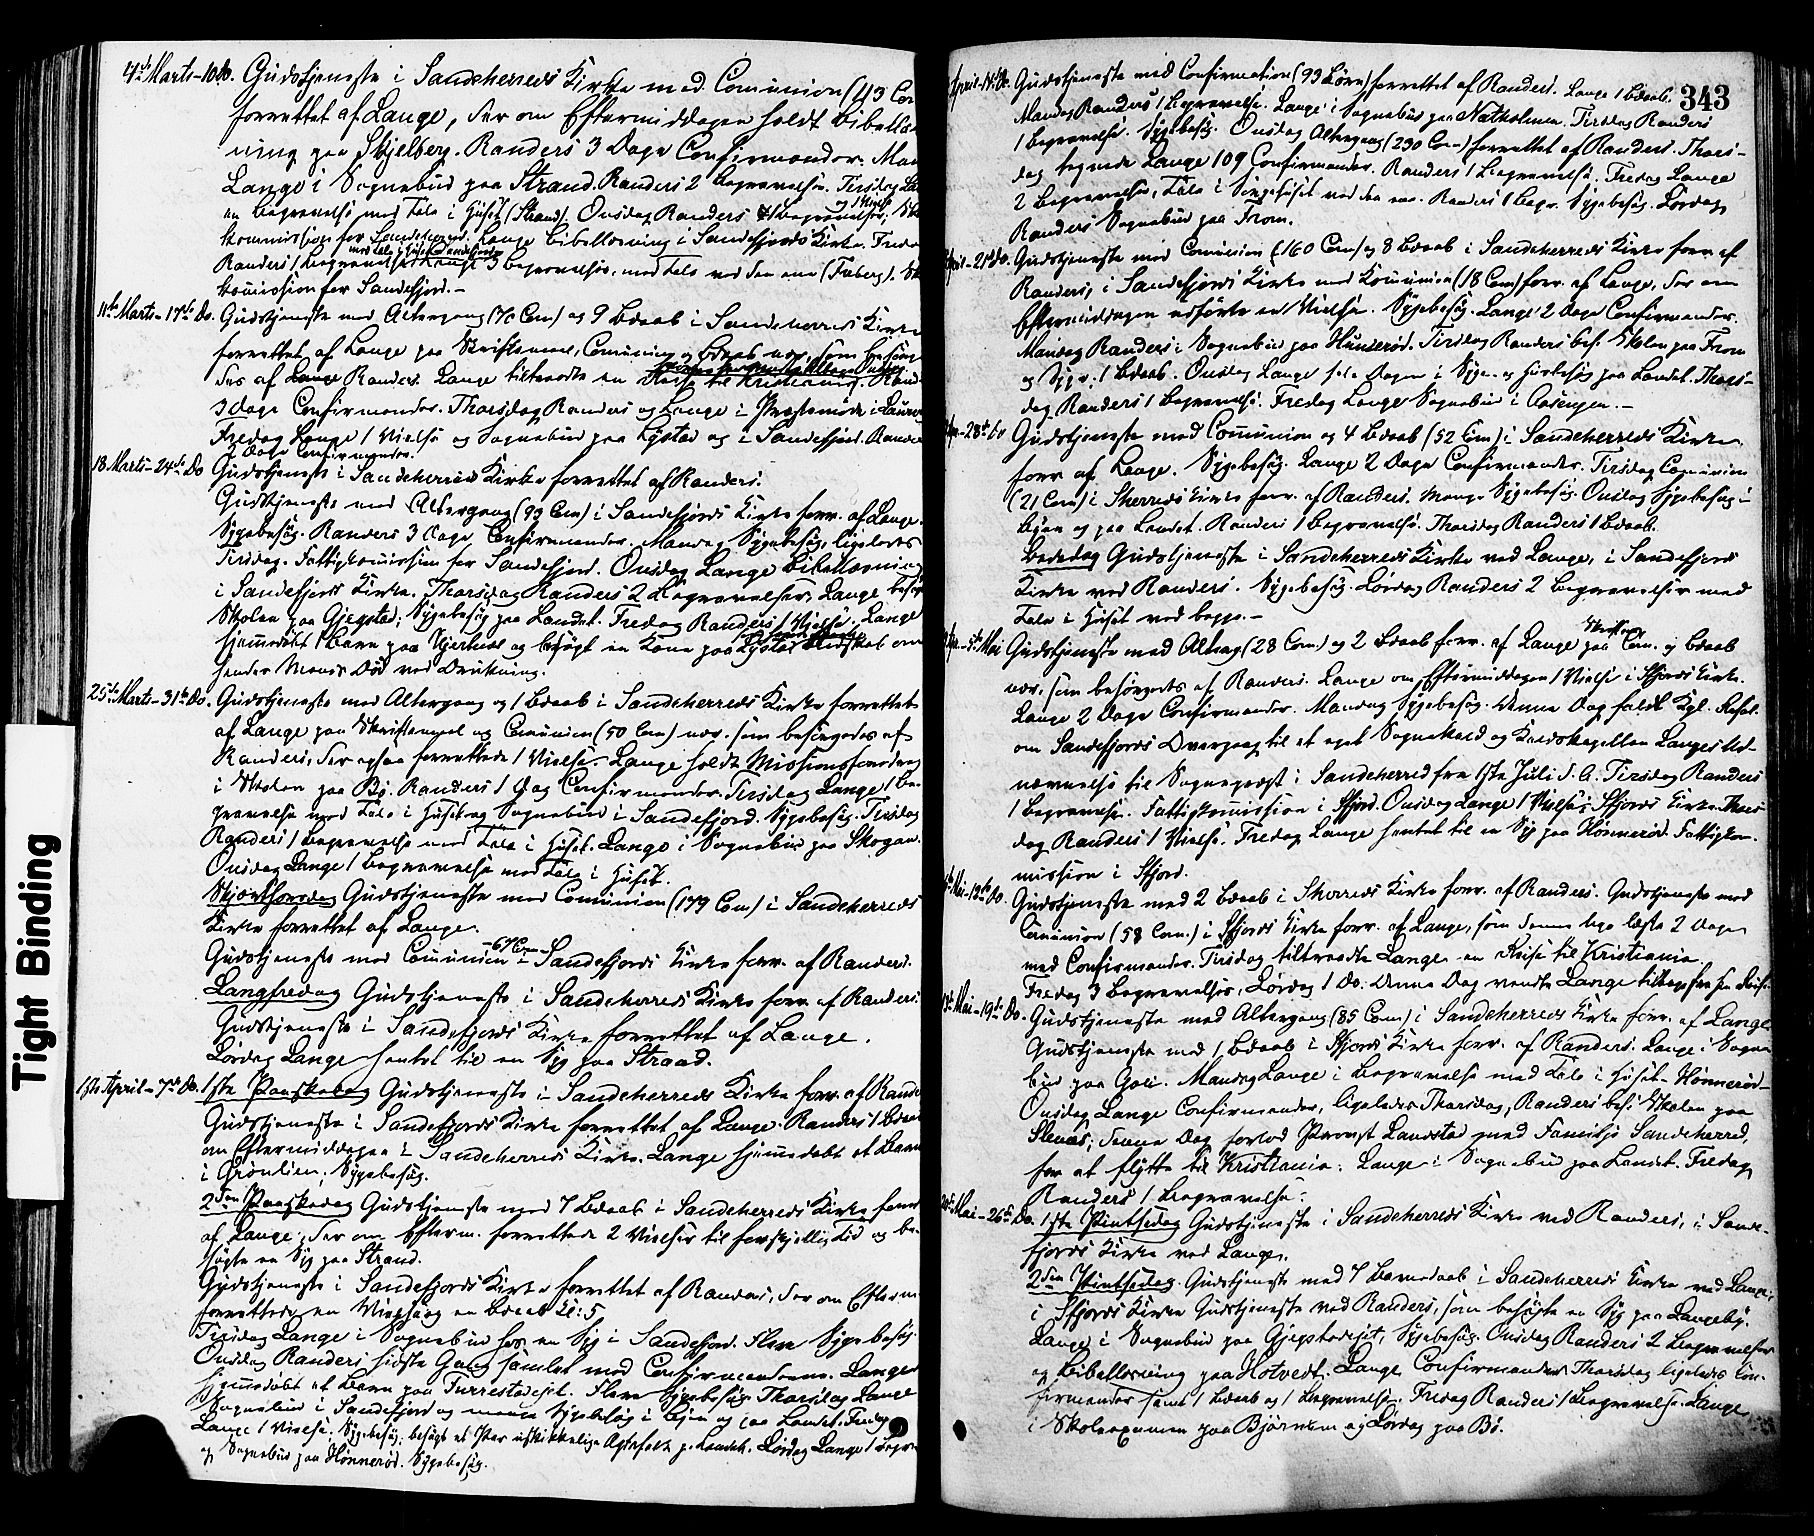 4de Marts-10do. Gudstjeneste i Sandeherreds Kirke med Comunion (43 Com
forrettet af Lange, der om Eftermiddagen holdt Bibellæs
ning paa Skjelberg. Randers 3 Dage Confirmander. Man
Lange i Sognebud paa Strand. Randers 2 Begravelser. Tirsdag La
en Begravelse med Tale i Huset (Strand). Onsdag Randers Begravelse, Sko
kommission for Sandeherred. Lange Bibellæsning i Sandefjords Kirke. Freda
Randers 1 Begravelse 3 Begravelser, med Tale ved den ene (Freberg). Sk
komission for Sandefjord.-
11te Marts-17de Do. Gudstjeneste med Altergang (70 Com) og 9 Bdaab i Sandeherreds Kirke
forrettet af Lange paa Skriftemaal, Comunion og Bdaab nær, som besørge
des af Randers. Lange tiltraadte en Reise til Kristiania. Rand
3 Dage Confirmander. Thorsdag Randers og Lange i Præstemøde i Laurv
Fredag Lange 1 Vielse og Sognebud paa Lystad og i Sandefjord. Rande
2 Dage Confirmander.
18 Marts-24de Do Gudstjeneste i Sandeherreds Kirke forrettet af Randers.
Gudstjeneste med Altergang (93 Com) i Sandefjords Kirke forr. af Lange.
Sygebesøg. Randers 3 Dage Confirmander. Mandag Sygebesøg, ligeledes
Tirsdag. Fattigkomission for Sandefjord. Onsdag Lange Bibellæsning
i Sandefjords Kirke. Thorsdag Randers 2 Begravelser, Lange besø
Skolen paa Gjegstad; Sygebesøg paa Landet. Fredag Randers 1 Vielse. Lange
hjemmedøbt 1 Barn paa Hjertnes og besøgt en Kone paa Lystad Budskab om
hendes Mands Død ved Drukning.
25de Marts-31te Do. Gudstjeneste med Altergang og 1 Bdaab i Sandeherreds Kirke forrettet
af Lange paa Skriftemaal og Comunion (50 Com) nær, som besørgedes af
Randers, der ogsaa forrettede 1 Vielse. Lange holdt Missionsforedrag
i Skolen paa Bø. Randers 1 Dag Confirmander. Tirsdag Lange 1 Be-
gravelse med Tale i Huset og Sognebud i Sandefjord. Sygebesøg. Tirsdag
Randers 1 Begravelse med Tale i Huset. Lange i Sognebud paa Skogan.
Onsdag Lange 1 Begravelse med Tale i Huset.
Skjærthorsdag Gudstjeneste med Comunion (179 Com) i Sandeherreds
Kirke forrettet af Lange.
Gudstjeneste med Comunion -67 Com- i Sandefjords Kirke forr. af Randers.
Langfredag Gudstjeneste i Sandeherreds Kirke forr. af Randers.
Gudstjeneste i Sandefjords Kirke forrettet af Lange.
Lørdag Lange hentet til en Syg paa Strand.
1ste April-7de Do. 1ste Paaskedag Gudstjeneste i Sandeherreds Kirke forr. af Rande
Gudstjeneste i Sandefjords Kirke forrettet af Lange. Randers 1 Bdaab
om Eftermiddagen i Sandeherreds Kirke. Lange hjemmedøbt et Barn
i Grønlien, Sygebesøg.
2den Paaskedag Gudstjeneste med 7 Bdaab i Sandeherreds Kirke forret
af Lange, der om Efterm. forrettede 2 Vielser til forskjellig Tid og be-
søgte en Syg paa Strand.
Gudstjeneste i Sandefjords Kirke forrettet af Randers, der om Efterm
forrettede en Vielse og en Bdaab Kl: 5
Tirsdag Lange i Sognebud hos en Syg i Sandefjord. Flere Sygebesøg.
Onsdag Randers sidste Gang samlet med Confirmanderne. Lange
hjemmedøbt et Barn paa Furrestadeiet. Flere Sygebesøg. Thorsdag Lange
Sognebud i Sandefjord og mange Sygebesøg i Byen og paa Landet. Fredag
Lange 1 Vielse; Sygebesøg; besøgt et Par uskikkelige Ægtefolk p. Landet. Lørdag Lange 1 Begra
og Sognebud paa Hønnerød. Sygebesøg.
343
April-14de Do. Gudstjeneste med Confirmation (93 Børn) forrettet af Randers. Lange 1 Bdaab.
Mandag Randers 1 Begravelse. Lange i Sognebud paa Natholmen. Tirsdag Randers
1 Begravelse. Sygebesøg. Onsdag Altergang (230 Com-) forrettet af Randers. Thors-
dag tegnede Lange 109 Confirmander. Randers 1 Begravelse. Fredag Lange
2 Begravelser, Tale i Sørgehuset ved den ene. Randers 1 Begr. Sygebesøg. Lørdag
Randers Sognebud paa From.
April-21de Do. Gudstjeneste med Comunion (160 Com) og 8 Bdaab i Sandeherreds Kirke forr. af
Randers, i Sandefjords Kirke med Komunion (18 Com) forr. af Lange, der om
Eftermiddagen udførte en Vielse. Sygebesøg. Lange 2 Dage Confirmander.
Mandag Randers i Sognebud paa Hunsrød. Tirsdag Randers bes. Skolen paa From
og Syge. 1 Bdaab. Onsdag Lange hele Dagen i Syge- og Husbesøg paa Landet. Thors-
dag Randers 1 Begravelse. Fredag Lange Sognebud i Aasengen.-
Apr-28de Do Gudstjeneste med Comunion og 4 Bdaab (52 Com) i Sandeherreds Kirke
forr af Lange. Sygebesøg. Lange 2 Dage Confirmander. Tirsdag Comunion
(21 Com) i Sherreds Kirke forr. af Randers. Mange Sygebesøg. Onsdag Sygebesøg i
Byen og paa Landet. Randers 1 Begravelse. Thorsdag Randers 1 Bdaab.
Bededag Gudstjeneste i Sandeherreds Kirke ved Lange, i Sandefjords
Kirke ved Randers. Sygebesøg. Lørdag Randers 2 Begravelser med
Tale i Huset ved begge.-
Apr-5te Mai Gudstjeneste med Alterg (28 Com) og 2 Bdaab forr. af Lange paa Skriftem. Com. og Bdaab
nær, som besørgedes af Randers. Lange om Eftermiddagen 1 Vielse i Sfjords Kirke.
Lange 2 Dage Confirmander. Mandag Sygebesøg. Denne Dag faldt Kgl. Resol.
om Sandefjords Overgang til et eget Sognekald og Residskapellan Langes Ud-
nævnelse til Sognepræst i Sandeherred fra 1ste Juli d. A. Tirsdag Randers
1 Begravelse. Fattigkommission i Sfjord. Onsdag Lange 1 Vielse i Sfjords Kirke. Thors-
dag Randers 1 Vielse. Fredag Lange hentet til en Syg paa Hønnerød. Fattigkom-
mission i Sfjord.
Mai-12te Do. Gudstjeneste med 2 Bdaab i Sherreds Kirke forr. af Randers. Gudstjeneste med
Comunion (58 Com.) i Sfjords Kirke forr. af Lange, som denne Uge læste 2 Dage
med Confirmander. Tirsdag tiltraadte Lange en Reise til Kristiania.
Fredag 3 Begravelser, Lørdag 1 Do. Denne Dag vendte Lange tilbage fra sin Reise.
Mai-19de Do. Gudstjeneste med Altergang (85 Com) i Sandeherreds Kirke forr. af Lange
Gudstjeneste med 1 Bdaab i Sfjords Kirke forr. af Randers. Lange i Sogne
bud paa Goli. Mandag Lange 1 Begravelse med Tale i Huset- Hønnerød-
Onsdag Lange Confirmander, ligeledes Thorsdag, Randers bes. Skolen paa
Stenæs; denne Dag forlod Provst Landstad med Familje Sandeherred,
for at flytte til Kristiania. Lange i Sognebud paa Landet. Fredag
Randers 1 Begravelse.
Mai-26de Do. 1ste Pintsedag Gudstjeneste i Sandeherreds Kirke ved Randers, i Sande-
fjords Kirke ved Lange.
2den Pintsedag. Gudstjeneste med 7 Barnedaab i Sandeherreds Kirke ved Lange,
i Sfjords Kirke Gudstjeneste ved Randers, som besøgte en Syg paa Langeby.
Lange i Sognebud paa Gjegstadeiet, Sygebesøg. Onsdag Randers 2 Begravelser
og Bibellæsning paa Hotvedt. Lange Confirmander Thorsdag ligeledes Con-
firmander samt 1 Bdaab og 1 Begravelse. Fredag Randers 1 Begravelse. Lange
i Skoleexamen paa Bjørnum og Lørdag paa Bø.
Tight Binding